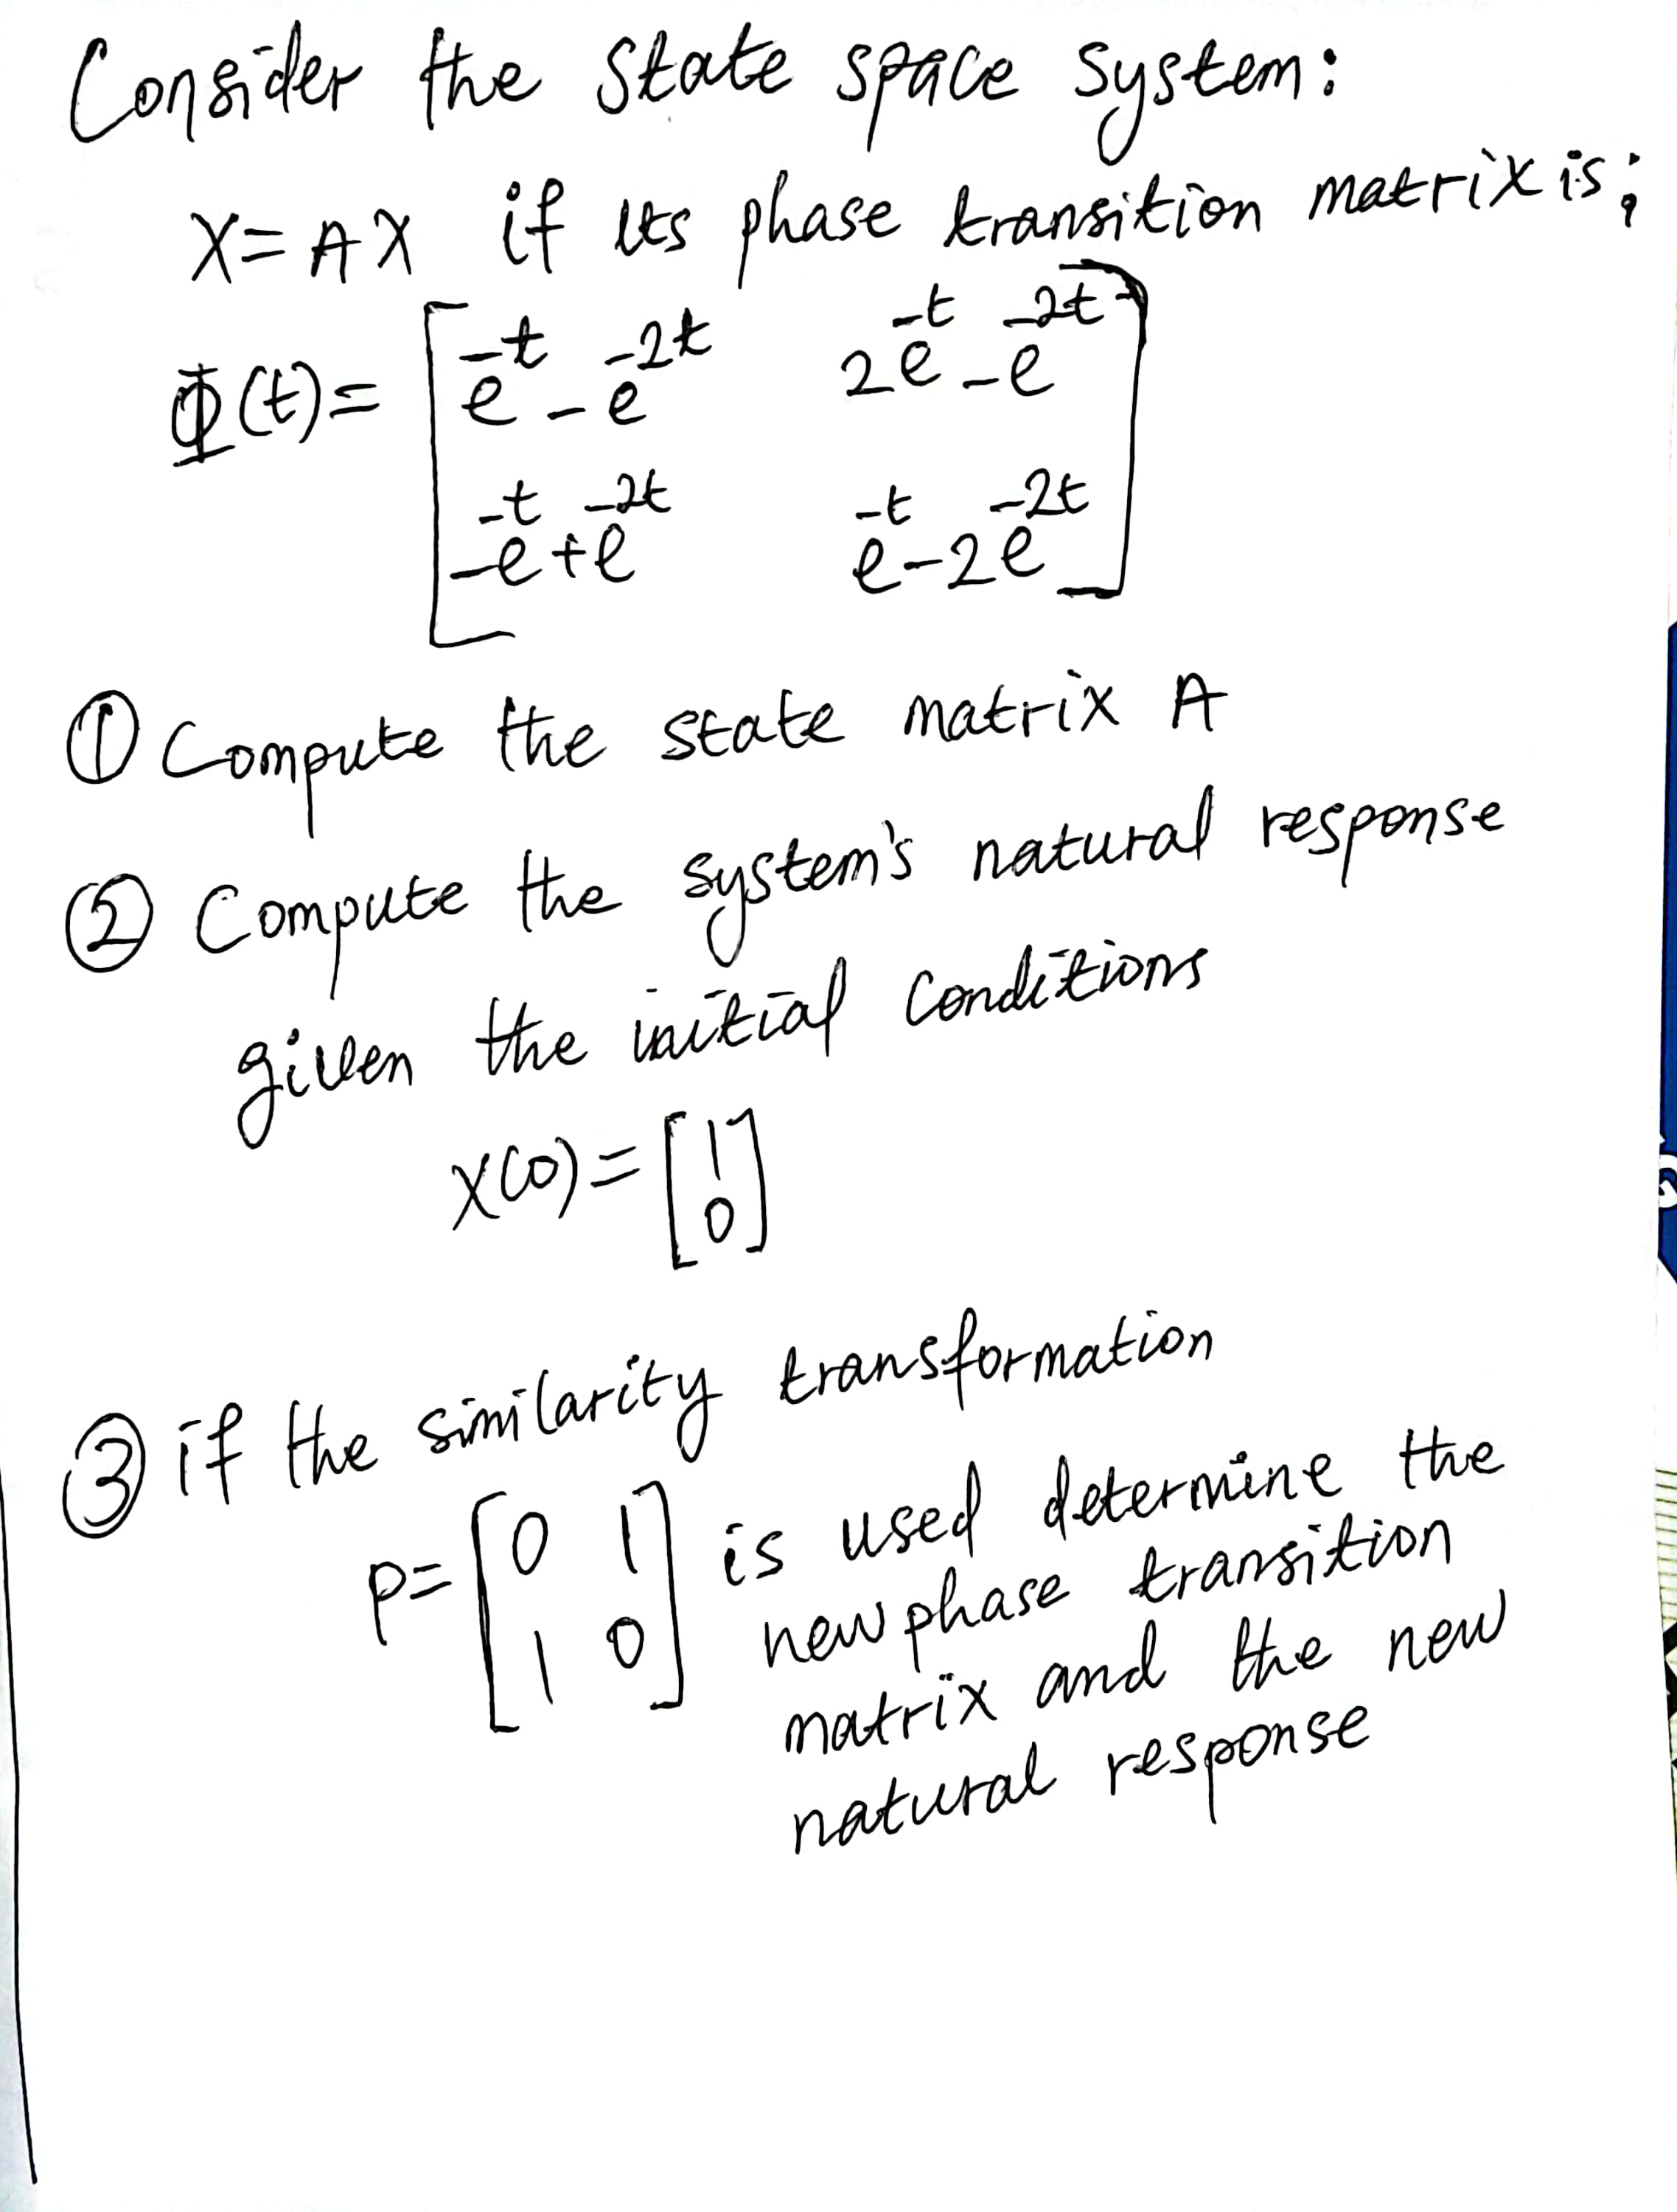 Consider the state space system:
X = AX if its phase transition matrix is;
Φ(t) = [ e^{-t} - e^{-2t}    2e^{-t} - e^{-2t}
-e^{-t} + e^{-2t}    e^{-t} - 2e^{-2t} ]
① Compute the state matrix A
② Compute the system's natural response
given the initial conditions
X(0) = [ 1
0 ]
③ if the similarity transformation
P = [ 0 1
1 0 ] is used determine the
new phase transition
matrix and the new
natural response